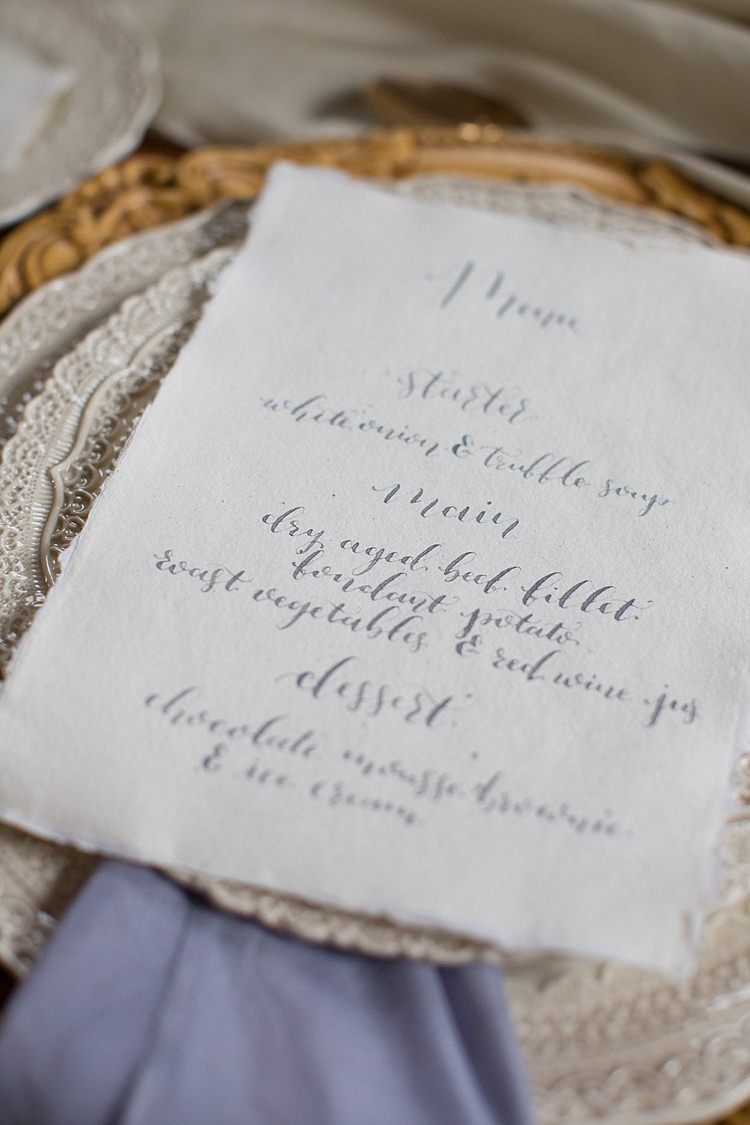 Menu
starter
white onion & truffle soup
main
dry aged beef fillet
fondant potato
roast vegetables & red wine jus
dessert
chocolate mousse brownie
& ice cream